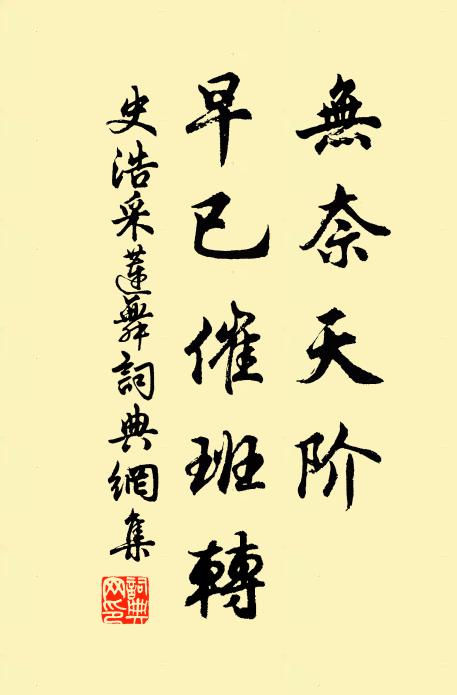 無奈天阶
早已催班轉
史浩采蓮舞詞典網集
詞典
网印